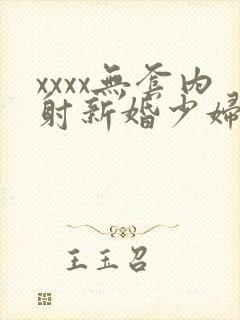 xxxx無套内
射新婚少婦
王玉召